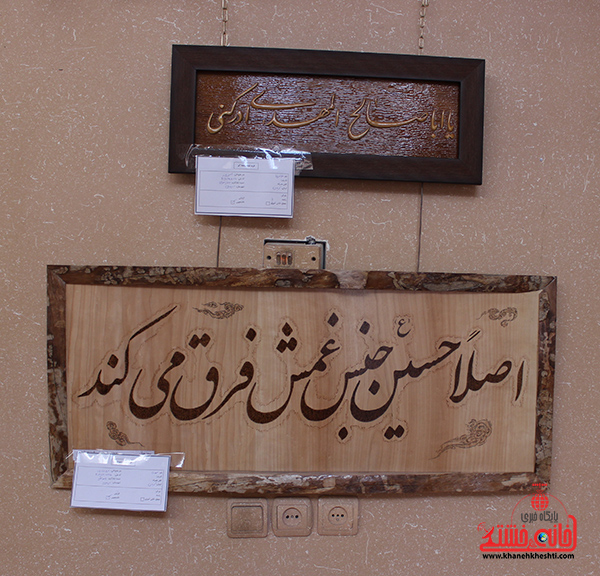 یا ابا صالح المهدی ادرکنی
اصلاً حسین ع جنس غمش فرق می کند
پایگاه خبری
خانه خشتی
www.khanehkheshti.com